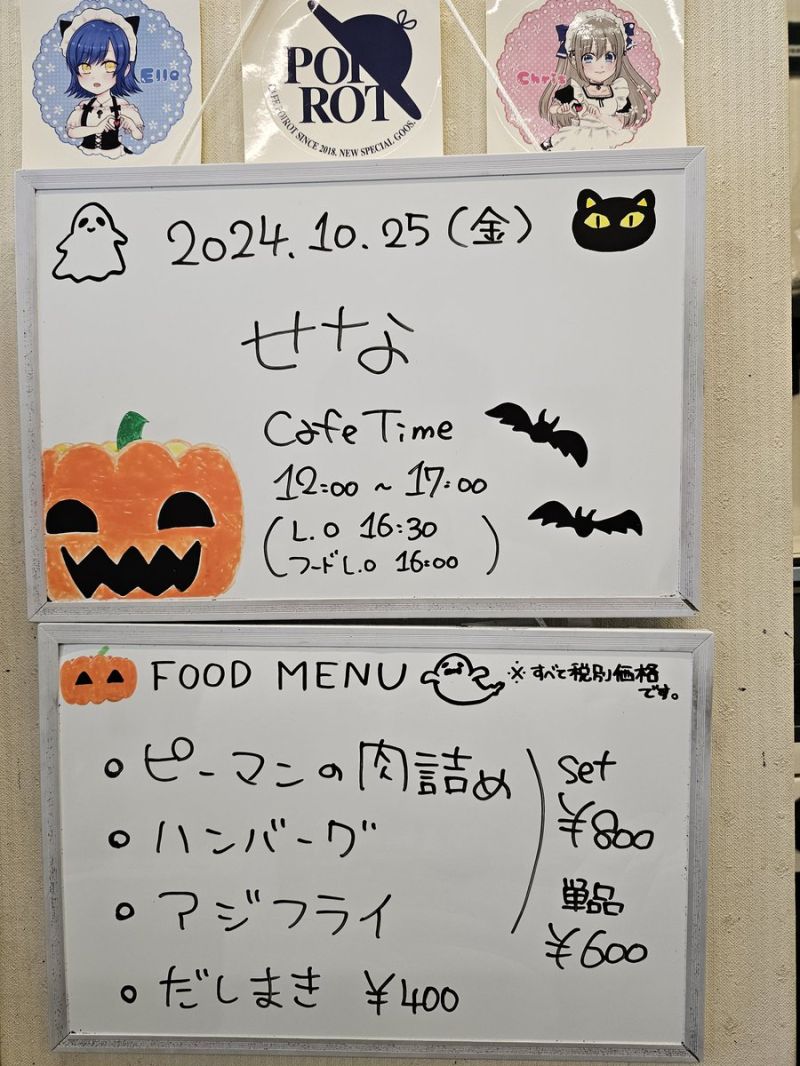 Ello
POI
ROT
CAFE POIROT SINCE 2018. NEW SPECIAL GOOS.
Chris
2024.10.25(金)
せな
Cafe Time
12:00 ~ 17:00
(L.O 16:30
フードL.O 16:00)
FOOD MENU
※すべて税別価格
です。
• ピーマンの肉詰め
• ハンバーグ
• アジフライ
set
¥800
単品
¥600
• だしまき ¥400